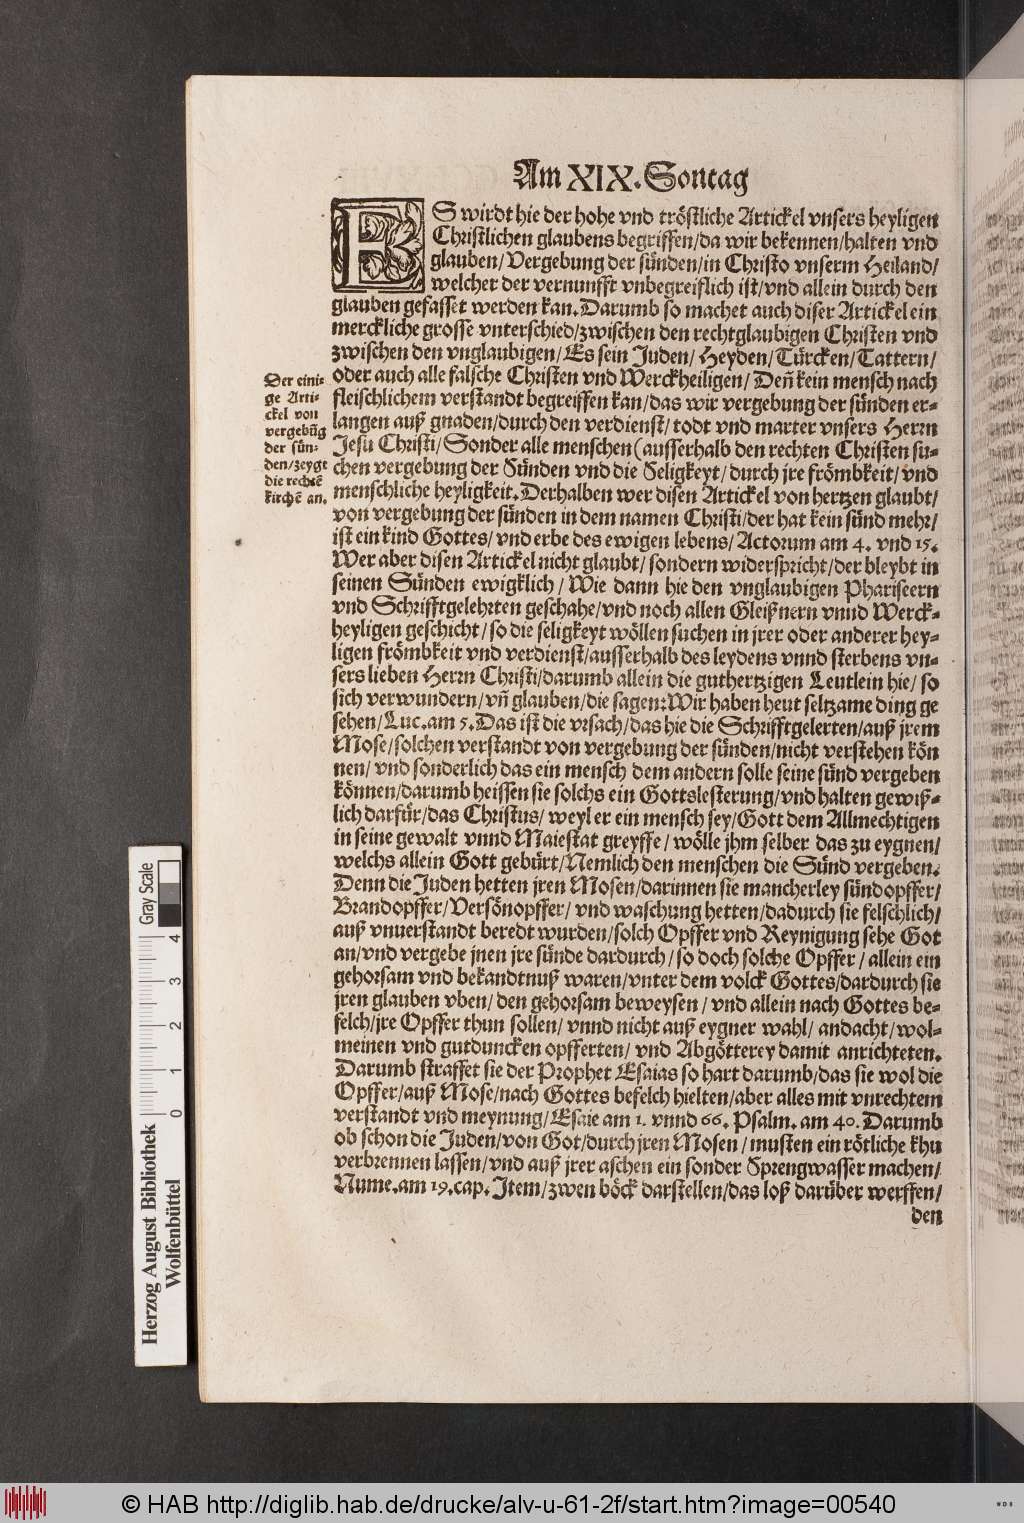 Am XIX. Sontag
ES wirdt hie der hohe vnd tröstliche Artickel vnsers heyligen
Christlichen glaubens begriffen/da wir bekennen/halten vnd
glauben/Vergebung der sünden/in Christo vnserm Heiland/
welcher der vernunfft vnbegreiflich ist/vnd allein durch den
glauben gefasset werden kan. Darumb so machet auch diser Artickel ein
merckliche grosse vnterschied/zwischen den rechtglaubigen Christen vnd
zwischen den vnglaubigen/Es sein Juden/Heyden/Türcken/Tattern/
oder auch alle falsche Christen vnd Werckheiligen/Deñ kein mensch nach
fleischlichem verstandt begreiffen kan/das wir vergebung der sünden er-
langen auß gnaden/durch den verdienst/todt vnd marter vnsers Herrn
Jesu Christi/Sonder alle menschen (ausserhalb den rechten Christen su-
chen vergebung der Sünden vnd die Seligkeyt/durch jre frömbkeit/vnd
menschliche heyligkeit. Derhalben wer disen Artickel von hertzen glaubt/
von vergebung der sünden in dem namen Christi/der hat kein sünd mehr/
ist ein kind Gottes/vnd erbe des ewigen lebens/Actorum am 4. vnd 15.
Wer aber disen Artickel nicht glaubt/sondern widerspricht/der bleybt in
seinen Sünden ewigklich/Wie dann hie den vnglaubigen Phariseern
vnd Schrifftgelehrten geschahe/vnd noch allen Gleißnern vnnd Werck-
heyligen geschicht/so die seligkeyt wöllen suchen in jrer oder anderer hey-
ligen frömbkeit vnd verdienst/ausserhalb des leydens vnnd sterbens vn-
sers lieben Herrn Christi/darumb allein die guthertzigen Leutlein hie/so
sich verwundern/vñ glauben/die sagen: Wir haben heut seltzame ding ge
sehen/Luc. am 5. Das ist die vrsach/das hie die Schrifftgelerten/auß jrem
Mose/solchen verstandt von vergebung der sünden/nicht verstehen kön
nen/vnd sonderlich das ein mensch dem andern solle seine sünd vergeben
können/darumb heissen sie solchs ein Gottslesterung/vnd halten gewiß-
lich darfür/das Christus/weyl er ein mensch sey/Gott dem Allmechtigen
in seine gewalt vnnd Maiestat greyffe/wölle jhm selber das zu eygnen/
welchs allein Gott gebürt/Nemlich den menschen die Sünd vergeben.
Denn die Juden hetten jren Mosen/darinnen sie mancherley sündopffer/
Brandopffer/Versönopffer/vnd waschung hetten/dadurch sie felschlich/
auß vnuerstandt beredt wurden/solch Opffer vnd Reynigung sehe Got
an/vnd vergebe jnen jre sünde dardurch/so doch solche Opffer/allein ein
gehorsam vnd bekandtnuß waren/vnter dem volck Gottes/dardurch sie
jren glauben vben/den gehorsam beweysen/vnd allein nach Gottes be-
felch/jre Opffer thun sollen/vnnd nicht auß eygner wahl/andacht/wol-
meinen vnd gutduncken opfferten/vnd Abgötterey damit anrichteten.
Darumb straffet sie der Prophet Esaias so hart darumb/das sie wol die
Opffer/auß Mose/nach Gottes befelch hielten/aber alles mit vnrechtem
verstandt vnd meynung/Esaie am 1. vnnd 66. Psalm. am 40. Darumb
ob schon die Juden/von Got/durch jren Mosen/musten ein rötliche khu
verbrennen lassen/vnd auß jrer aschen ein sonder Sprengwasser machen/
Nume. am 19. cap. Item/zwen böck darstellen/das loß darüber werffen/
den
Der eini-
ge Arti-
ckel von
vergebũg
der sün-
den/zeygt
die rechtẽ
kirchẽ an.
Gray Scale
0 1 2 3 4
Herzog August Bibliothek
Wolfenbüttel
© HAB http://diglib.hab.de/drucke/alv-u-61-2f/start.htm?image=00540